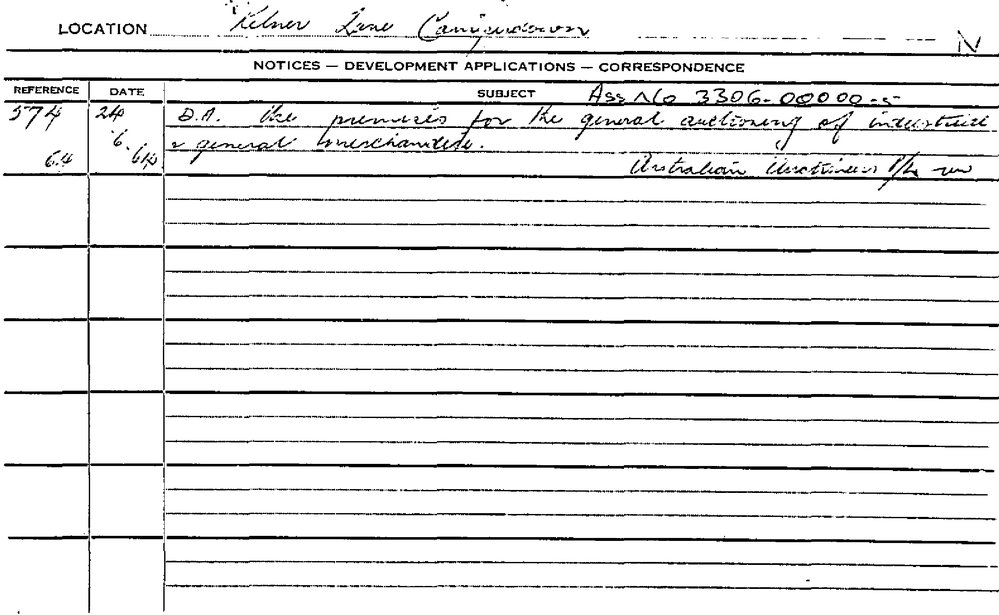 LOCATION Kelner Lane Camperdown N
NOTICES — DEVELOPMENT APPLICATIONS — CORRESPONDENCE
REFERENCE DATE SUBJECT Ass No 3306-00000-5
574 24 D.A. Use premises for the general auctioning of industrial
64 6. 64 & general merchandise.
Australian Auctioneers P/L